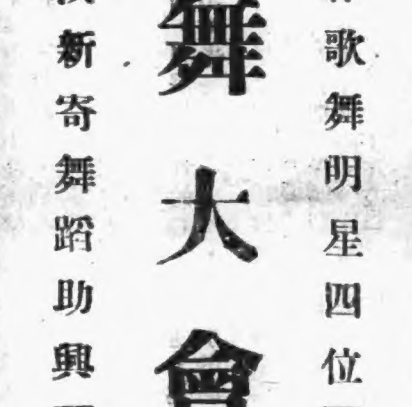 歌舞明星四位
舞大會
新寄舞蹈助興